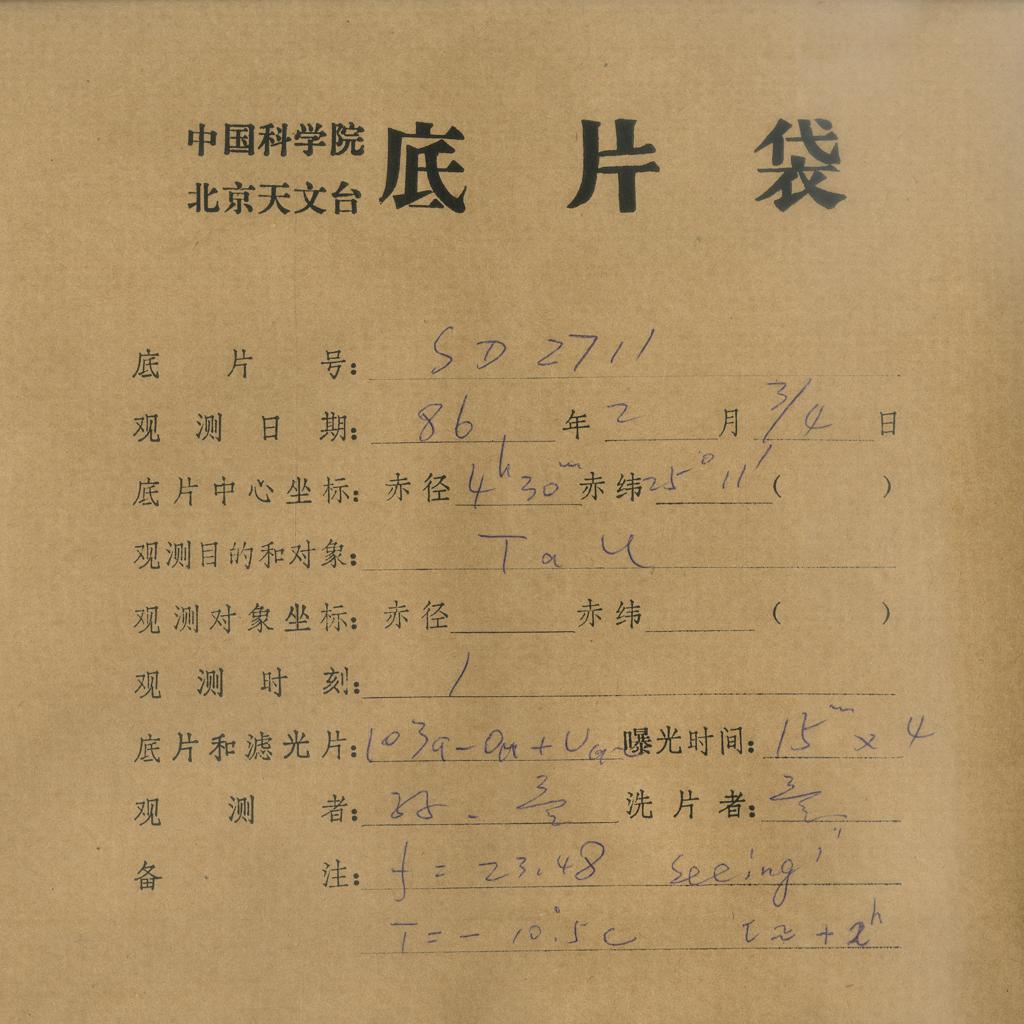 中国科学院
北京天文台
底片袋
底片号: SD 2711
观测日期: 86 年 2 月 3/4 日
底片中心坐标: 赤径 4h 30m 赤纬 25° 11′ ( )
观测目的和对象: Tau
观测对象坐标: 赤径 赤纬 ( )
观测时刻: /
底片和滤光片: 103a-O 曝光时间: 15m × 4
观测者: 洗片者:
备注: f = 23.48 seeing
T = -10°.5 C t = + 2h